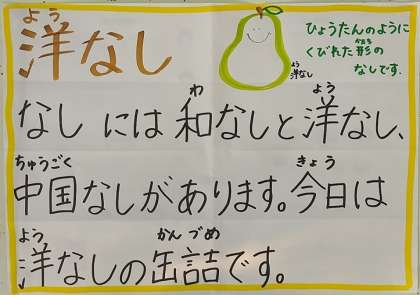 よう
洋なし
ひょうたんのように
かたち
くびれた形の
なしです。
よう
洋なし
わ よう
なしには和なしと洋なし、
ちゅうごく きょう
中国なしがあります。今日は
よう かんづめ
洋なしの缶詰です。